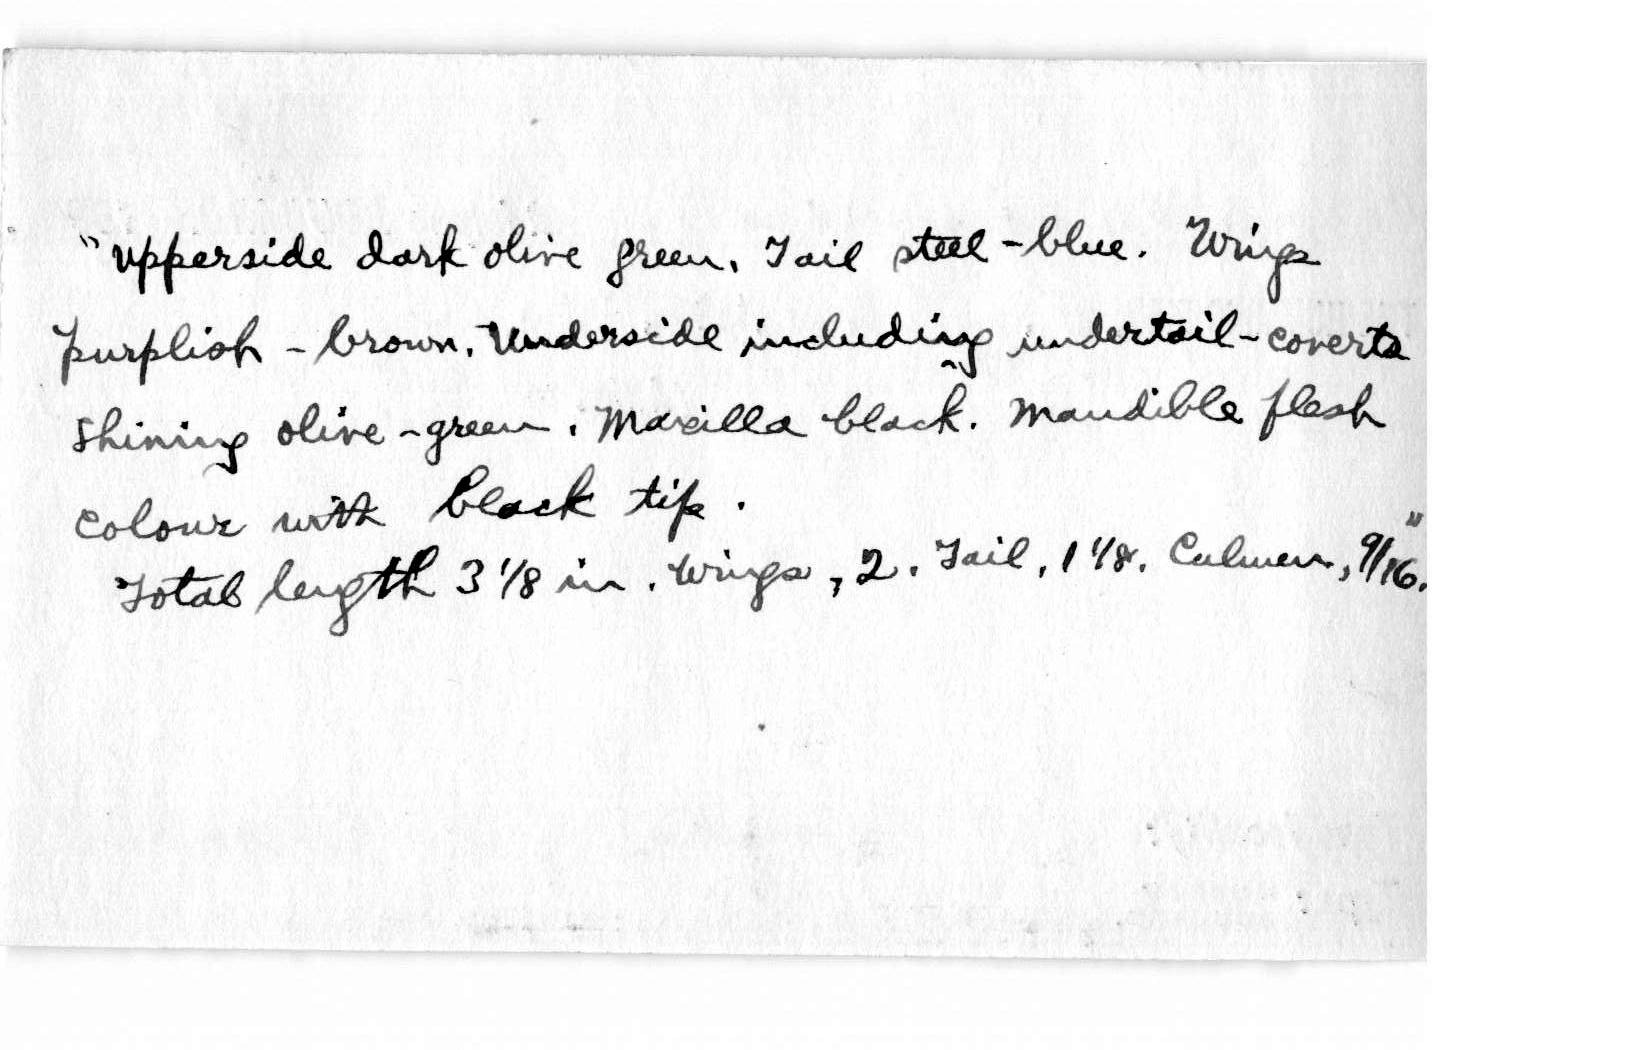 "Upperside dark olive green. Tail steel-blue. Wings
purplish-brown. Underside including undertail-coverts
shining olive-green. Maxilla black. Mandible flesh
colour with black tip.
Total length 3 1/8 in. Wings, 2. Tail, 1 1/8. Culmen, 9/16."